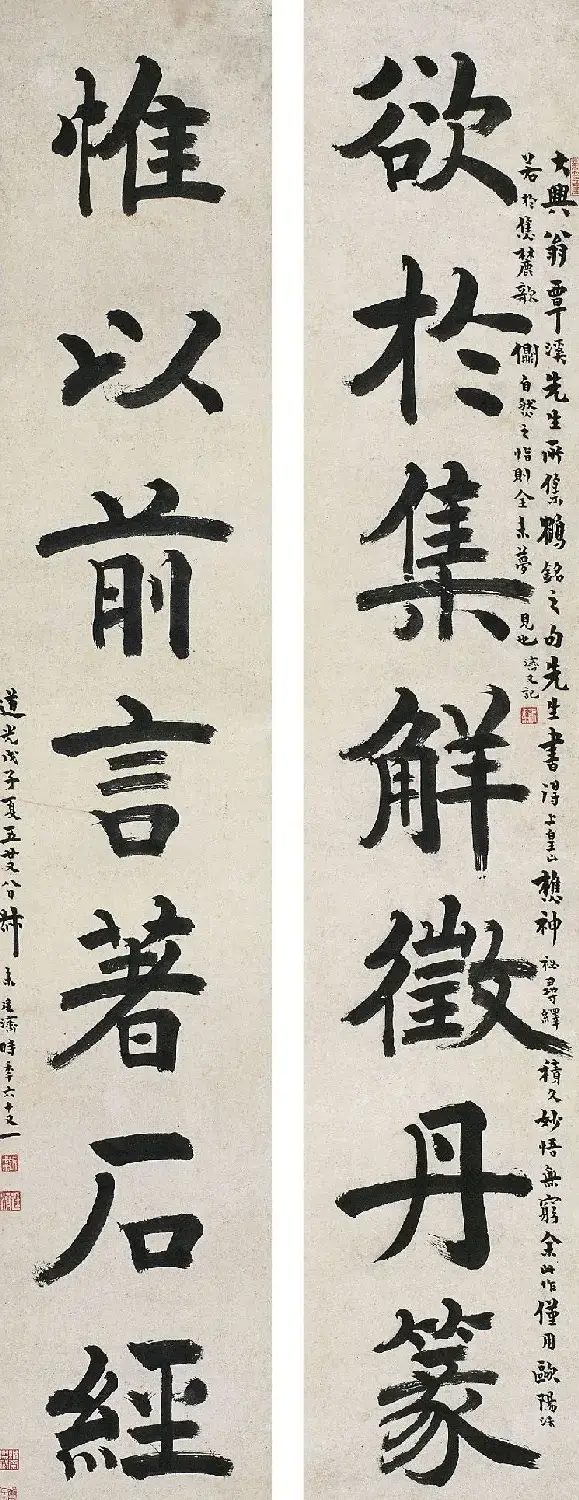 欲於集解徵丹篆
大興翁覃溪先生所集鶴銘之句先生書得上皇山樵神祕尋繹積久妙悟無窮余此作僅用歐陽法
若於焦麓欹側自然之恉則全未夢見也濟又記
惟以前言著石經
道光戊子夏五廿又八日叔未廷濟時年六十又一